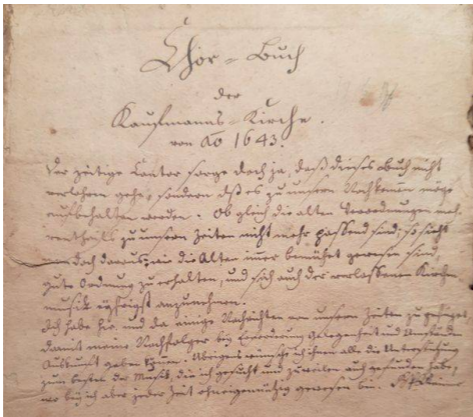 Chor-Buch
der
Kaufmanns-Kirche.
von Ao 1643.
Der zeitige Cantor sorge doch ja, daß dieses Buch nicht
verlohren gehe, sondern daß es zu unsern Nachkommen möge
aufbehalten werden. Ob gleich die alten Verordnungen
zu unsern Zeiten nicht mehr passend sind; so sieht
doch daraus, wie die Alten immer bemühet gewesen sind,
gute Ordnung zu erhalten, und sich auch der verlassenen Kirchen
musik eyfrigst anzunehmen.
Ich habe hie und da einige Nachrichten von unsern Zeiten zu gefüget,
damit meine Nachfolger bey Gelegenheit und Umständen
Auskunft geben können. Übrigens wünsche ich ihnen alle die Unterstützung
zum besten der Musik, die ich gesucht und zuweilen auch gefunden habe,
wo bey ich aber jeder Zeit ohneigennützig gewesen bin.